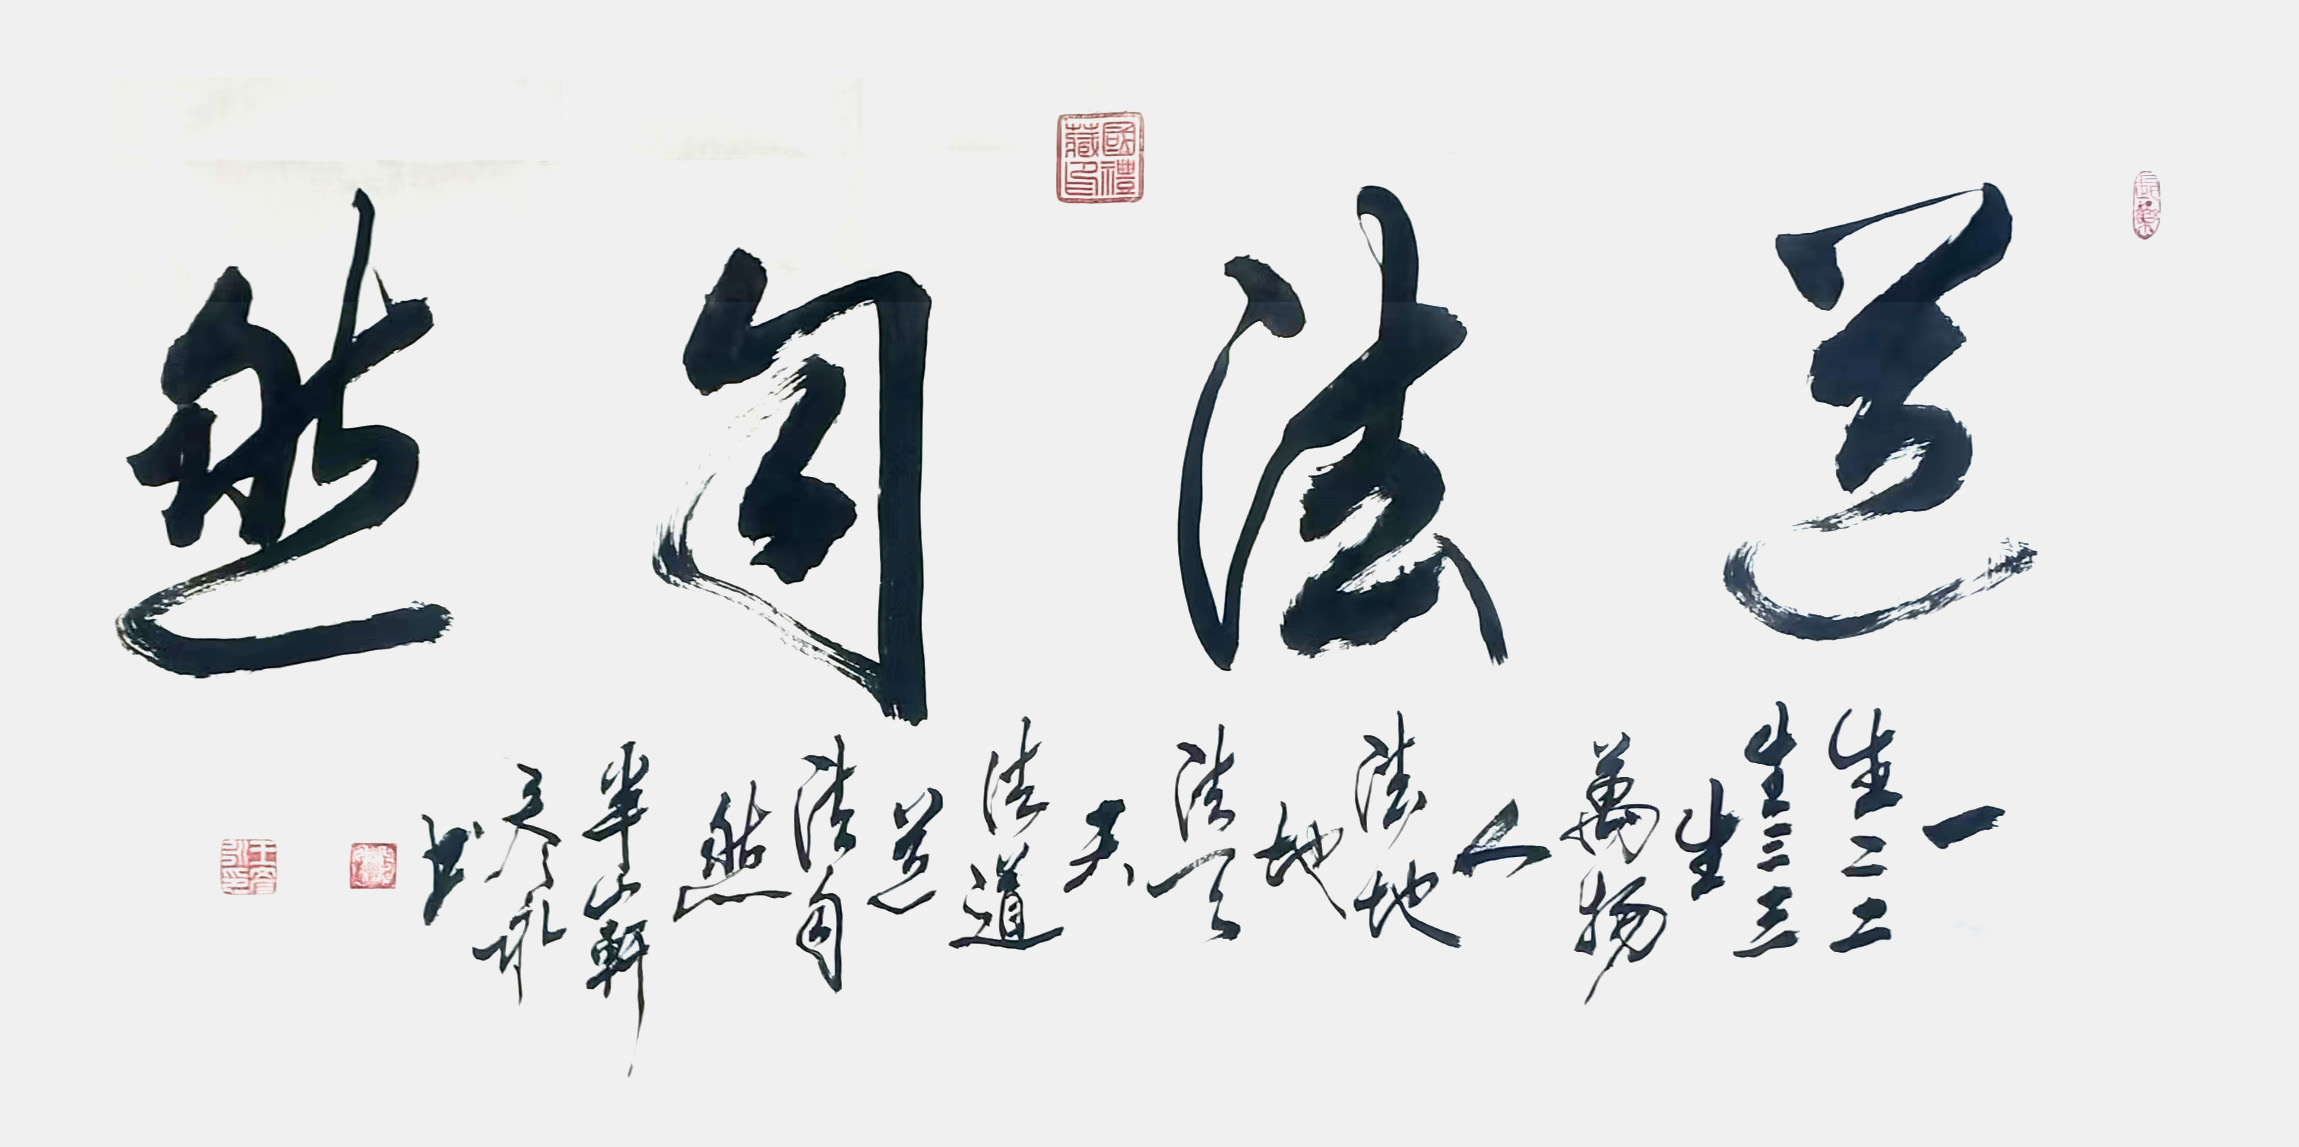 道法自然
一
生二二
生三三
生
萬物
人
法地
地
法天
天
法道
道
法自
然
半山軒
書
國禮藏印